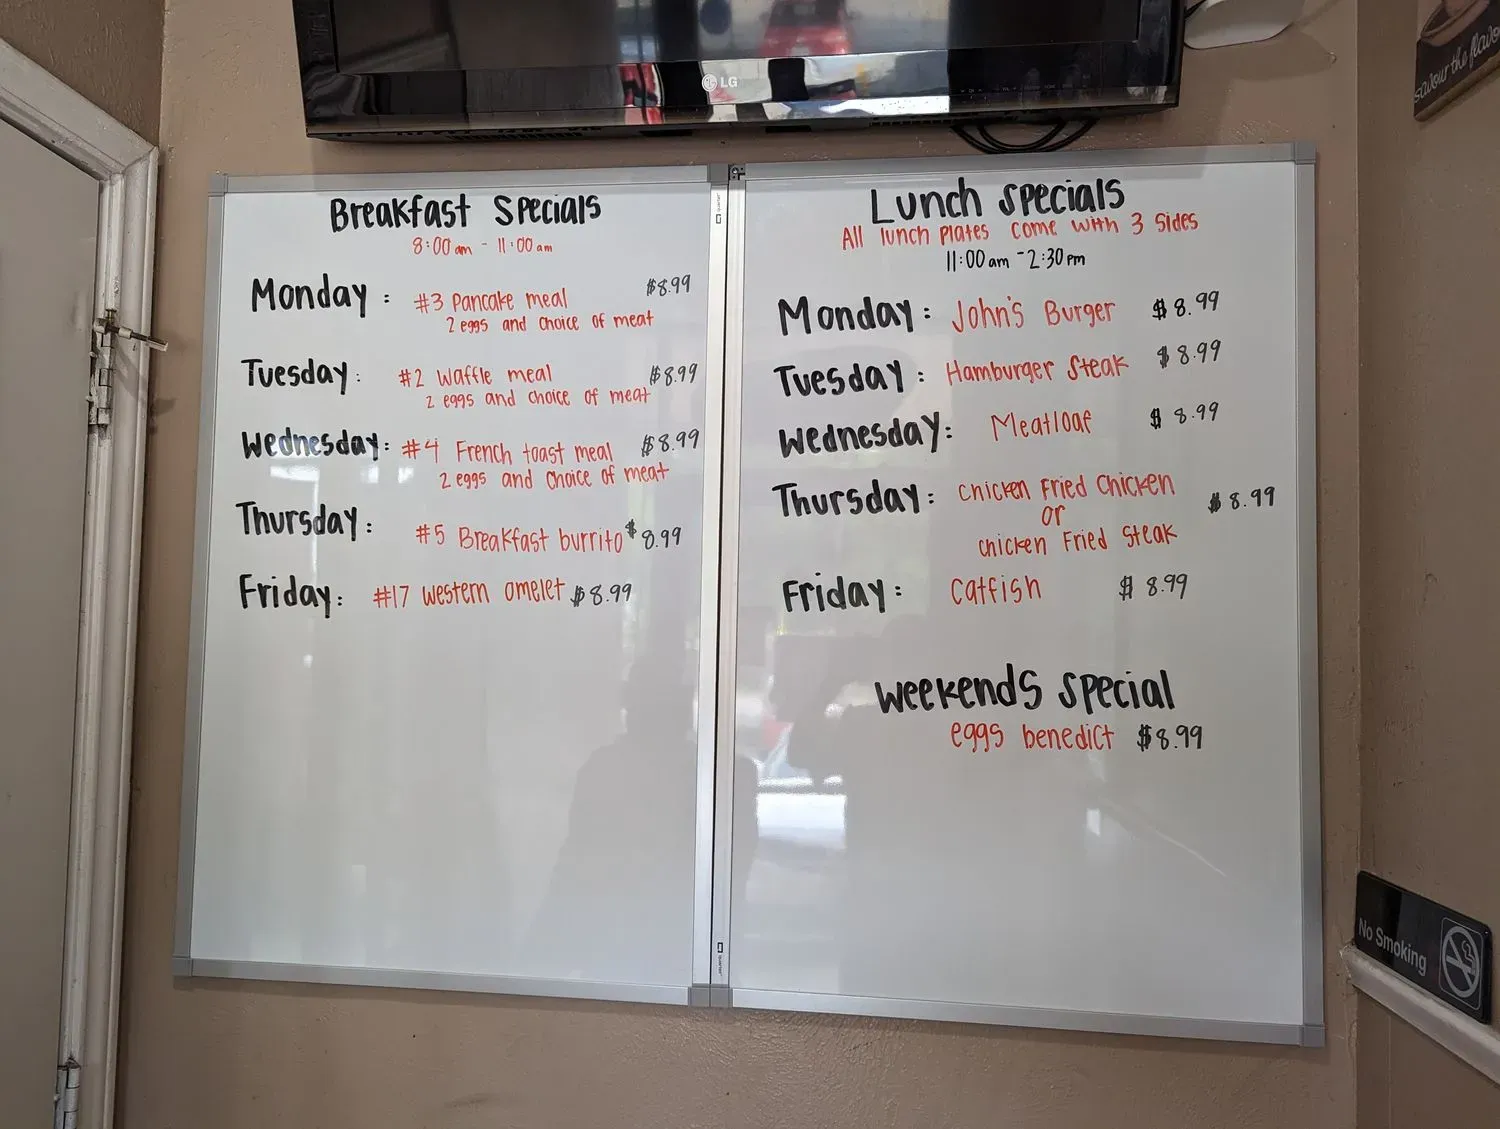 LG
savour the flavo
Breakfast Specials
8:00 am - 11:00 am
Monday : #3 Pancake meal $8.99
2 eggs and choice of meat
Tuesday : #2 Waffle meal $8.99
2 eggs and choice of meat
Wednesday: #4 French toast meal $8.99
2 eggs and choice of meat
Thursday: #5 Breakfast burrito $8.99
Friday: #17 Western omelet $8.99
Lunch Specials
All lunch plates come with 3 sides
11:00 am - 2:30 pm
Monday: John's Burger $8.99
Tuesday: Hamburger Steak $8.99
Wednesday: Meatloaf $8.99
Thursday: Chicken Fried Chicken $8.99
or
Chicken Fried Steak
Friday: Catfish $8.99
Weekends Special
eggs benedict $8.99
No Smoking